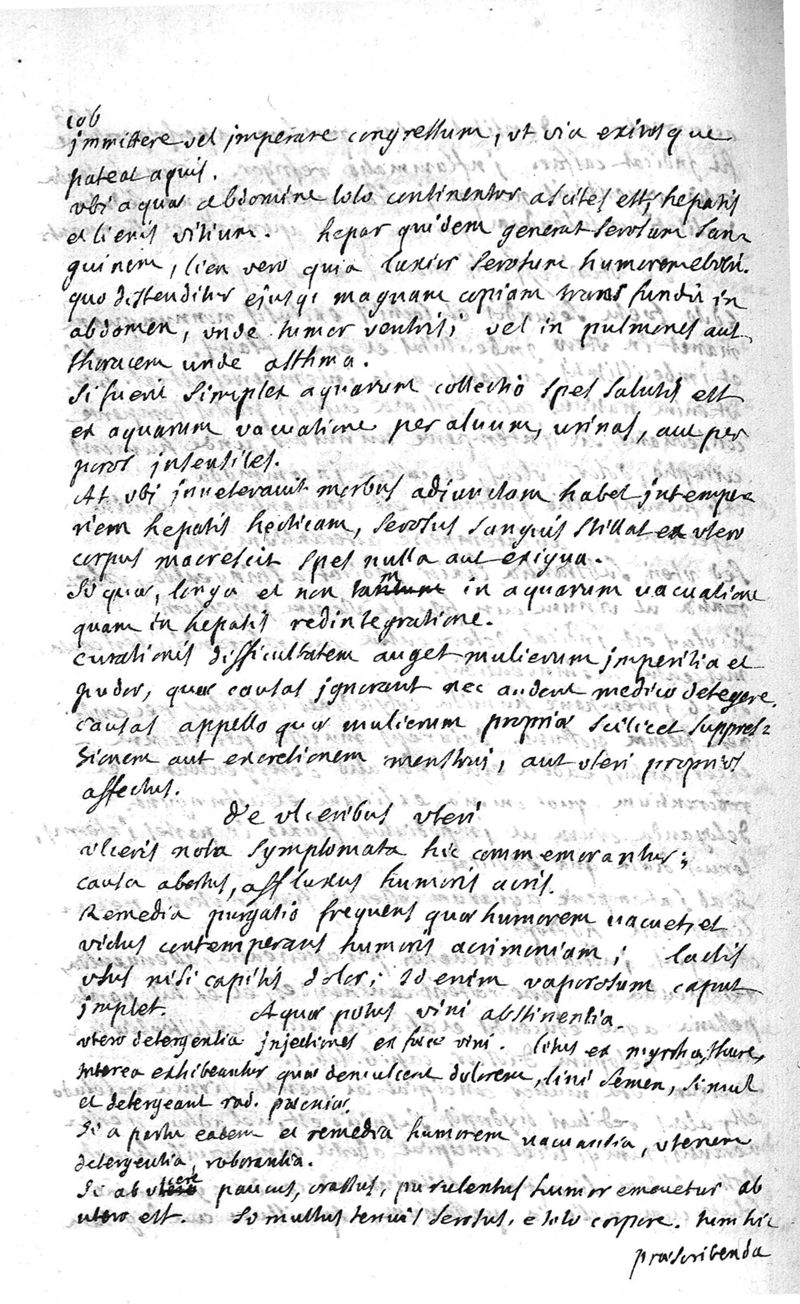 106
jmmittere vel jmperare congressum, vt via exitosque
pateat aquis.
vbi aquæ abdomine toto continentur ascites est, hepatis
et lienis vitium. hepar quidem generat serosum san-
guinem, lien vero quia laxior serosum humorem ebibit.
quo distenditur ejusq; magnam copiam transfundit in
abdomen, vnde tumor ventris; vel in pulmones aut
thoracem unde asthma.
Si fuerit simplex aquarum collectio spes salutis est
ex aquarum vacuatione per aluum, urinas, aut per
poros jnsensiles.
At vbi jnueteravit morbus adjunctam habet jntempe-
riem hepatis hecticam, serosus sanguis stillat ex vtero
corpus macrescit spes nulla aut exigua.
Si qua, longa et non tam in aquarum vacuatione
quam in hepatis redintegratione.
curationis difficultatem auget mulierum jmperitia et
pudor, quæ causas jgnorant nec audent medico detegere.
causas appello quæ mulierum propriæ scilicet suppres=
sionem aut excretionem menstrui, aut vteri proprios
affectus.
De vlceribus vteri
vlceris nota symptomata hic commemorantur;
causa abortus, affluxus humoris acris.
Remedia purgatio frequens quæ humorem vacuet, et
victus contemperans humoris acrimoniam; lactis
vsus nisi capitis dolor; id enim vaporosum caput
jmplet. Aquæ potus vini abstinentia.
vtero detergentia jnjectiones ex fæce vini. litus ex myrrha, thure,
jnterea exhibeantur quæ demulcent dolorem, lini semen, simul
et detergeant rad. pæoniæ.
Si a partu eadem et remedia humorem vacuantia, vterum
detergentia, roborantia.
Si ab vlcere paucus, crassus, purulentus humor emovetur ab
utero est. Si multus tenuis serosus, e toto corpore. tum hic
præscribenda